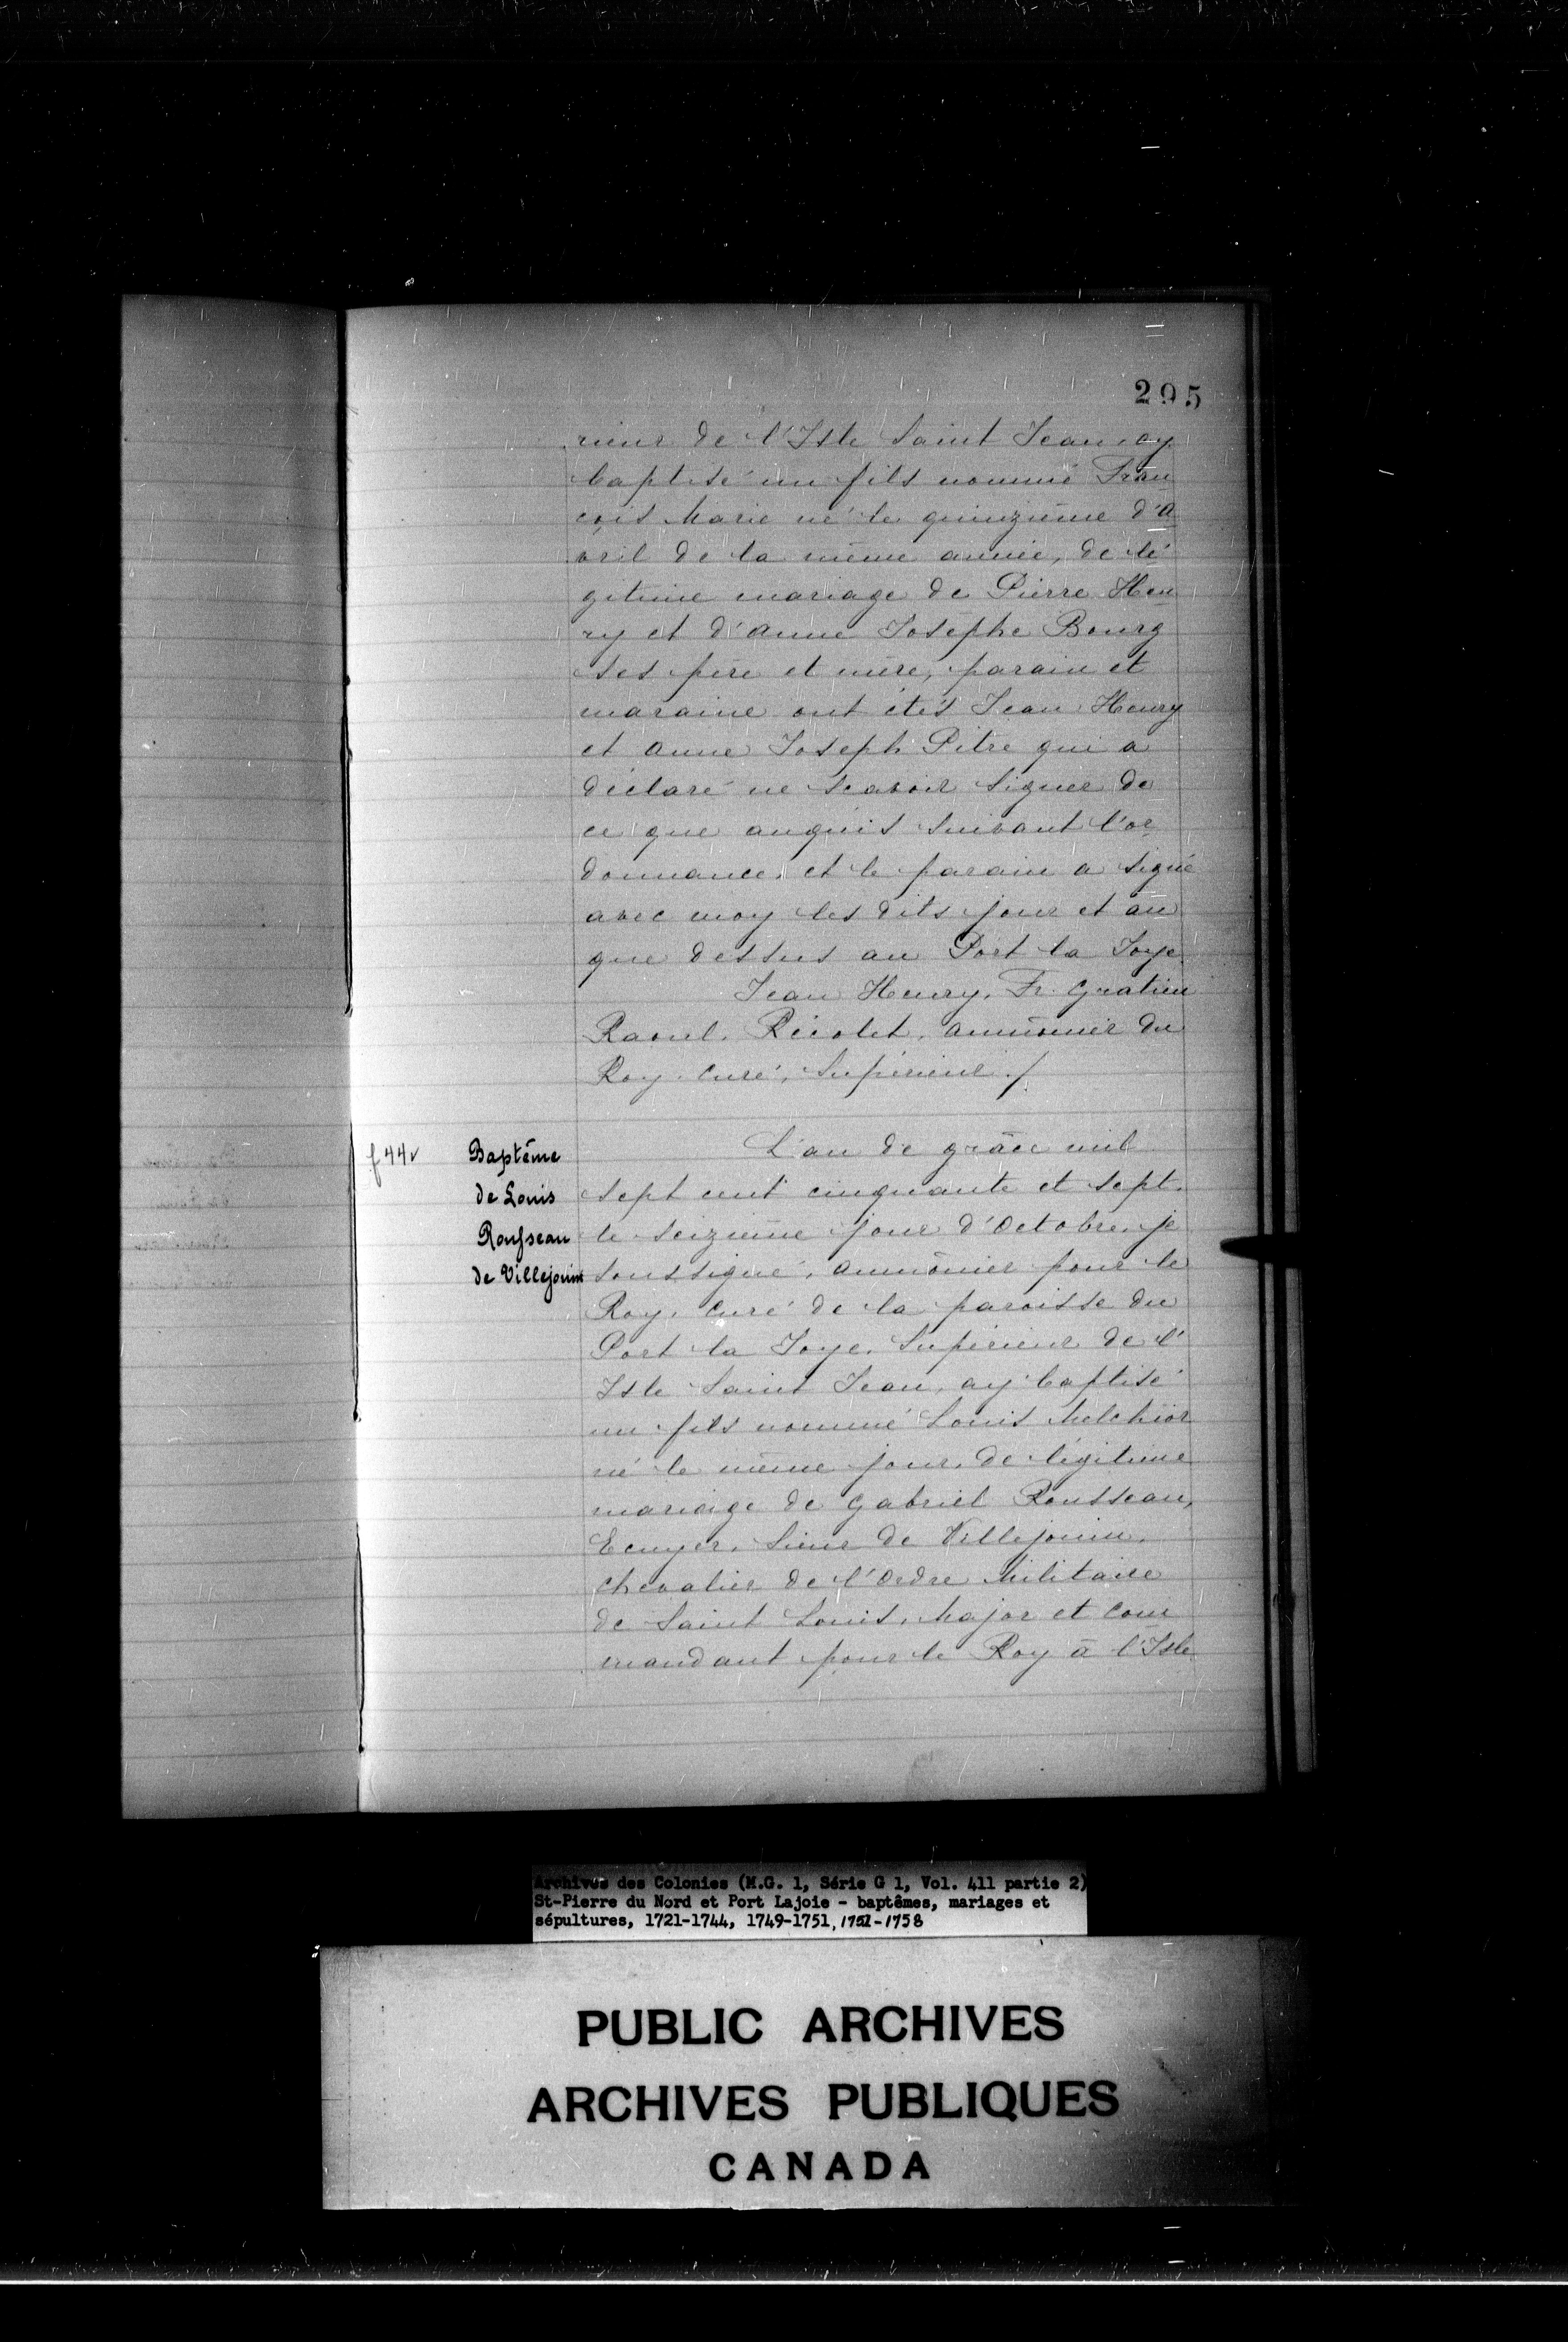 295
rieur de l'Isle Saint Jean, ay
baptisé un fils nommé Fran
cois Marie né le quinzième d'a
vril de la même année, de lé
gitime mariage de Pierre Hen
ry et d'anne Josephe Bourg
ses père et mère, parain et
maraine ont étés Jean Henry
et anne Joseph Pitre qui a
déclaré ne scavoir signer de
ce que anquis suivant l'or
donnance, et le parain a signé
avec moy les dits jour et an
que dessus au Port la Joye.
Jean Henry, Fr. gratien
Raoul, Récolet, aumônier du
Roy. curé, Supérieur ./.
f 44v
Baptême
de Louis
Rousseau
de Villejouin
L'an de grâce mil
sept cent cinquante et sept.
le seizième jour d'Octobre, je
soussigné, aumônier pour le
Roy, curé de la paroisse du
Port la Joye, Supérieur de l'
Isle Saint Jean, ay baptisé
un fils nommé Louis Melchior
né le même jour, de légitime
mariage de gabriel Rousseau,
Ecuyer, Sieur de Villejouin,
chevalier de l'Ordre Militaire
de Saint Louis, Major et com
mandant pour le Roy à l'Isle
Archives des Colonies (M.G. 1, Série G 1, Vol. 411 partie 2)
St-Pierre du Nord et Port Lajoie - baptêmes, mariages et
sépultures, 1721-1744, 1749-1751, 1751-1758
PUBLIC ARCHIVES
ARCHIVES PUBLIQUES
CANADA